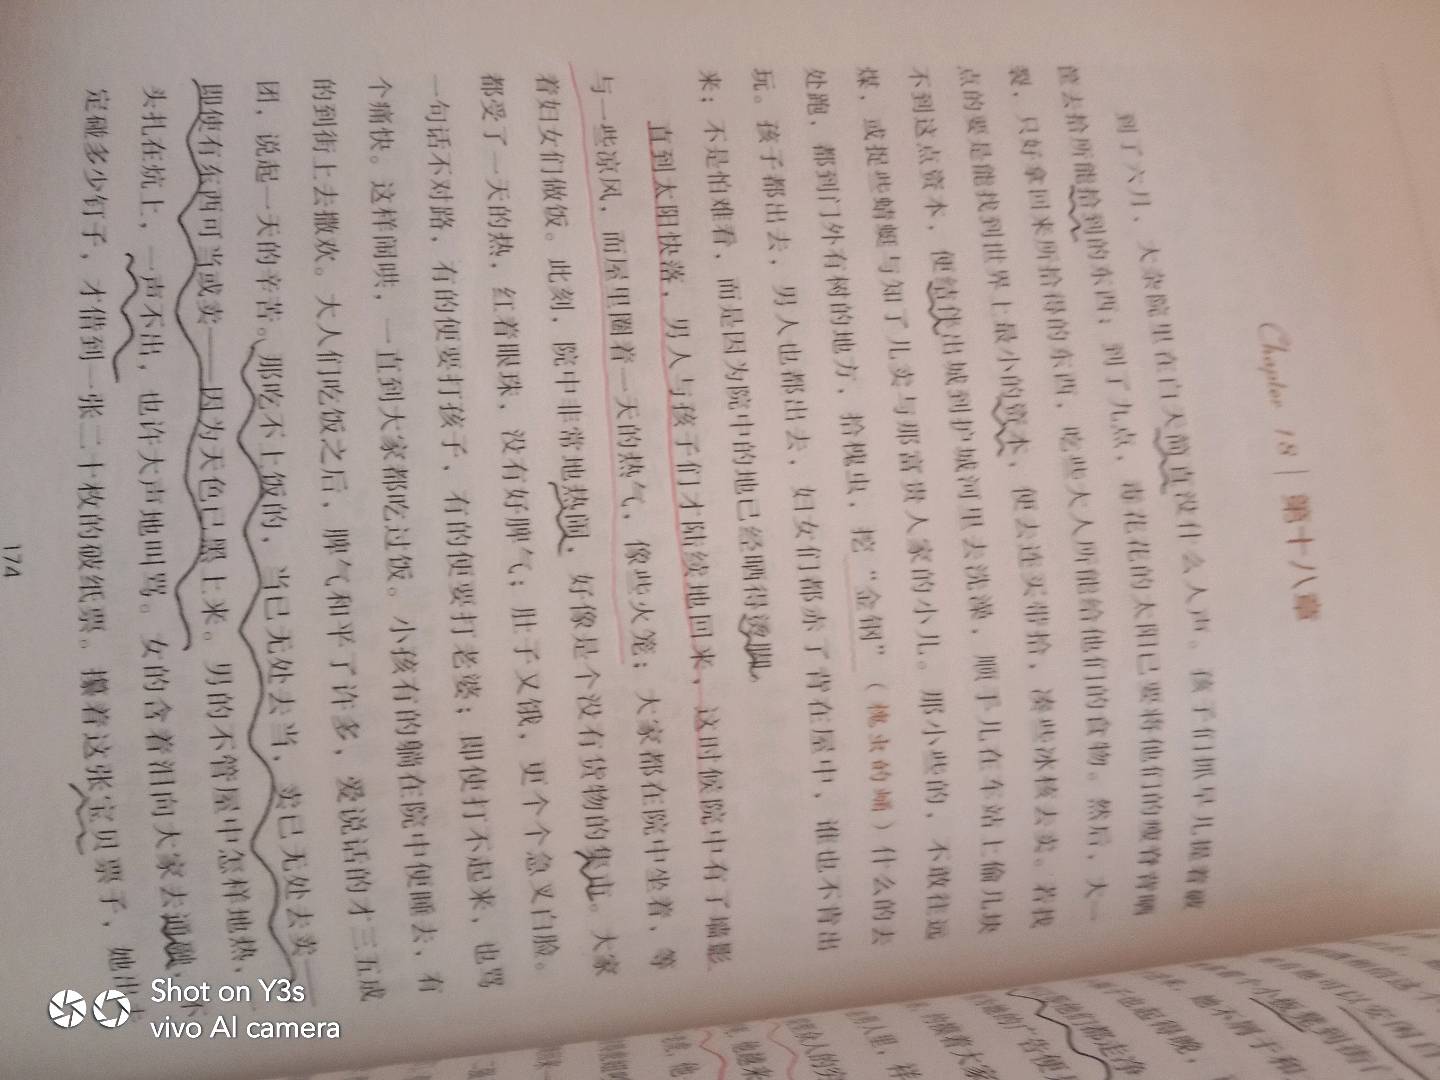 Chapter 18 | 第十八章
到了六月，大杂院里在白天简直没什么人声。孩子们抓早儿提着破
筐去拾所能拾到的东西；到了九点，毒花花的太阳已要将他们的瘦脊背晒
裂，只好拿回来所拾得的东西，吃些大人所能给他们的食物。然后，大一
点的要是能找到世界上最小的资本，便去连买带拾，凑些冰核去卖。若找
不到这点资本，便结伙出城到护城河里去洗澡，顺手儿在车站上偷几块
煤，或捉些蜻蜓与知了儿卖与那富贵人家的小儿。那小些的，不敢往远
处跑，都到门外有树的地方，拾槐虫，挖“金钢”（槐虫的蛹）什么的去
玩。孩子都出去，男人也都出去，妇女们都赤了背在屋中，谁也不肯出
来；不是怕难看，而是因为院中的地已经晒得烫脚。
直到太阳快落，男人与孩子们才陆续地回来，这时候院中有了墙影
与一些凉风，而屋里圈着一天的热气，像些火笼；大家都在院中坐着，等
着妇女们做饭。此刻，院中非常地热闹，好像是个没有货物的集市。大家
都受了一天的热，红着眼珠，没有好脾气；肚子又饿，更个个急叉白脸。
一句话不对路，有的便要打孩子，有的便要打老婆；即使打不起来，也骂
个痛快。这样闹哄，一直到大家都吃过饭。小孩有的躺在院中便睡去，有
的到街上去撒欢。大人们吃饭之后，脾气和平了许多，爱说话的才三五成
团，说起一天的辛苦。那吃不上饭的，当已无处去当，卖已无处去卖——
即使有东西可当或卖——因为天色已黑上来。男的不管屋中怎样地热，
头扎在炕上，一声不出，也许大声地叫骂。女的含着泪向大家去通融，不
定碰多少钉子，才借到一张二十枚的破纸票。攥着这张宝贝票子，她出
174
Shot on Y3s
vivo AI camera